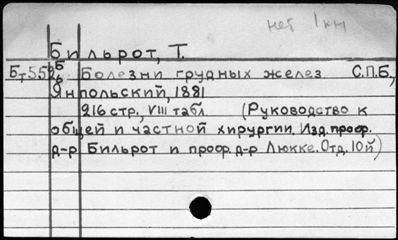 нет 1 кн
Бильрот, Т.
Болезни грудных желез С.П.Б.,
Янпольский, 1881
216 стр., VIII табл. (Руководство к
общей и частной хирургии, Изд. проф.
д-р Бильрот и проф. д-р Люкке. Отд. 10й)